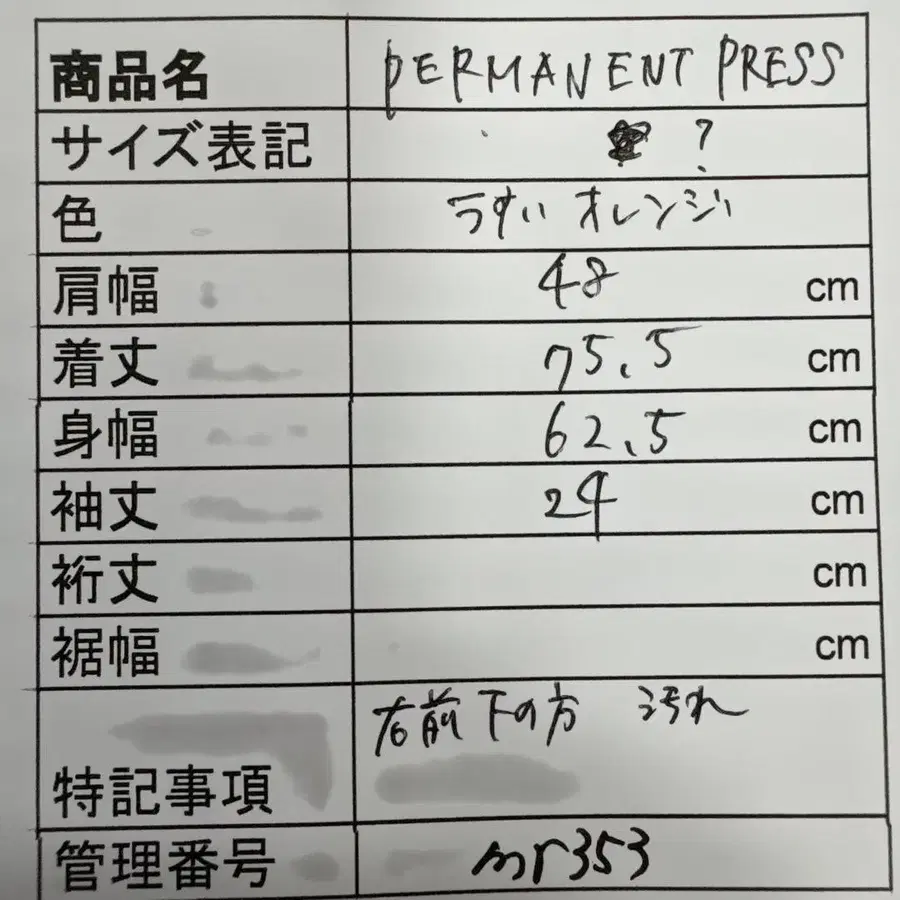 商品名 PERMANENT PRESS
サイズ表記 ?
色 うすい オレンジ
肩幅 48 cm
着丈 75.5 cm
身幅 62.5 cm
袖丈 24 cm
裄丈 cm
裾幅 cm
右前 下の方 汚れ
特記事項
管理番号 mr353